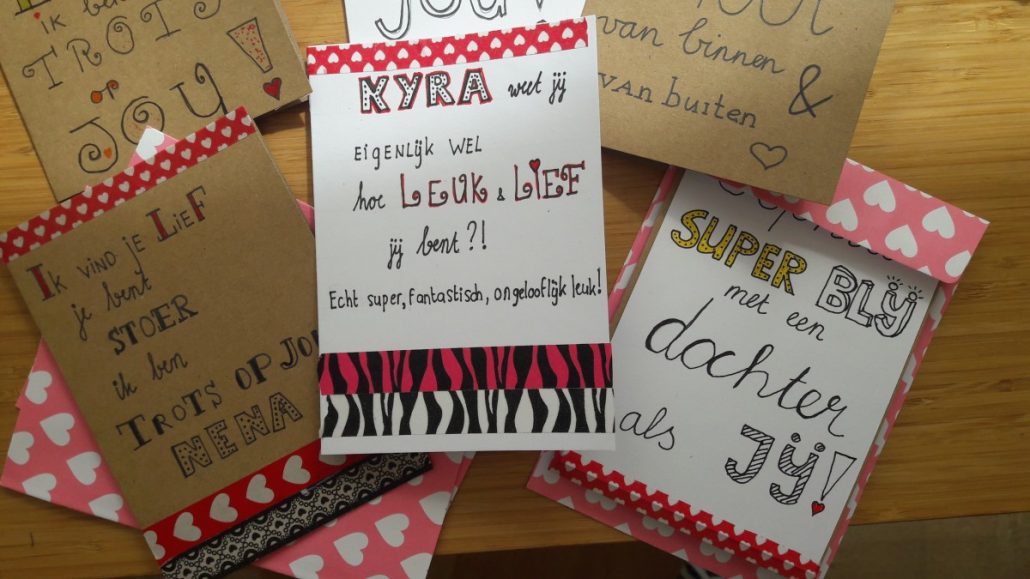 ik ben
TROTS
op
JOU!
JOU
van binnen
&
van buiten
KYRA weet jij
EigENLijk WEL
hoe LEUK & LiEF
jij bent?!
Echt super, fantastisch, ongelooflijk leuk!
IK VIND je LIEF
je bent
STOER
ik ben
TROTS OP JOU
NENA
SUPER BLIJ
met een
dochter
als JIJ!